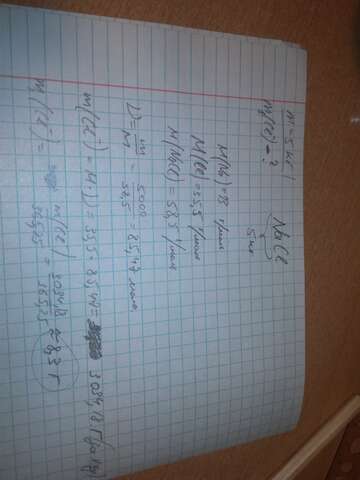 m = 5 кг
m₁(Cl) - ?
NaCl
5 кг
M(Na) = 23 г/моль
M(Cl) = 35,5 г/моль
M(NaCl) = 58,5 г/моль
ν = m/M = 5000/58,5 = 85,47 моль
m(Cl⁻) = M · ν = 35,5 · 85,47 = 3034,18 г
m₁(Cl⁻) = m(Cl)/365,25 = 3034,18/365,25 ≈ 8,3 г